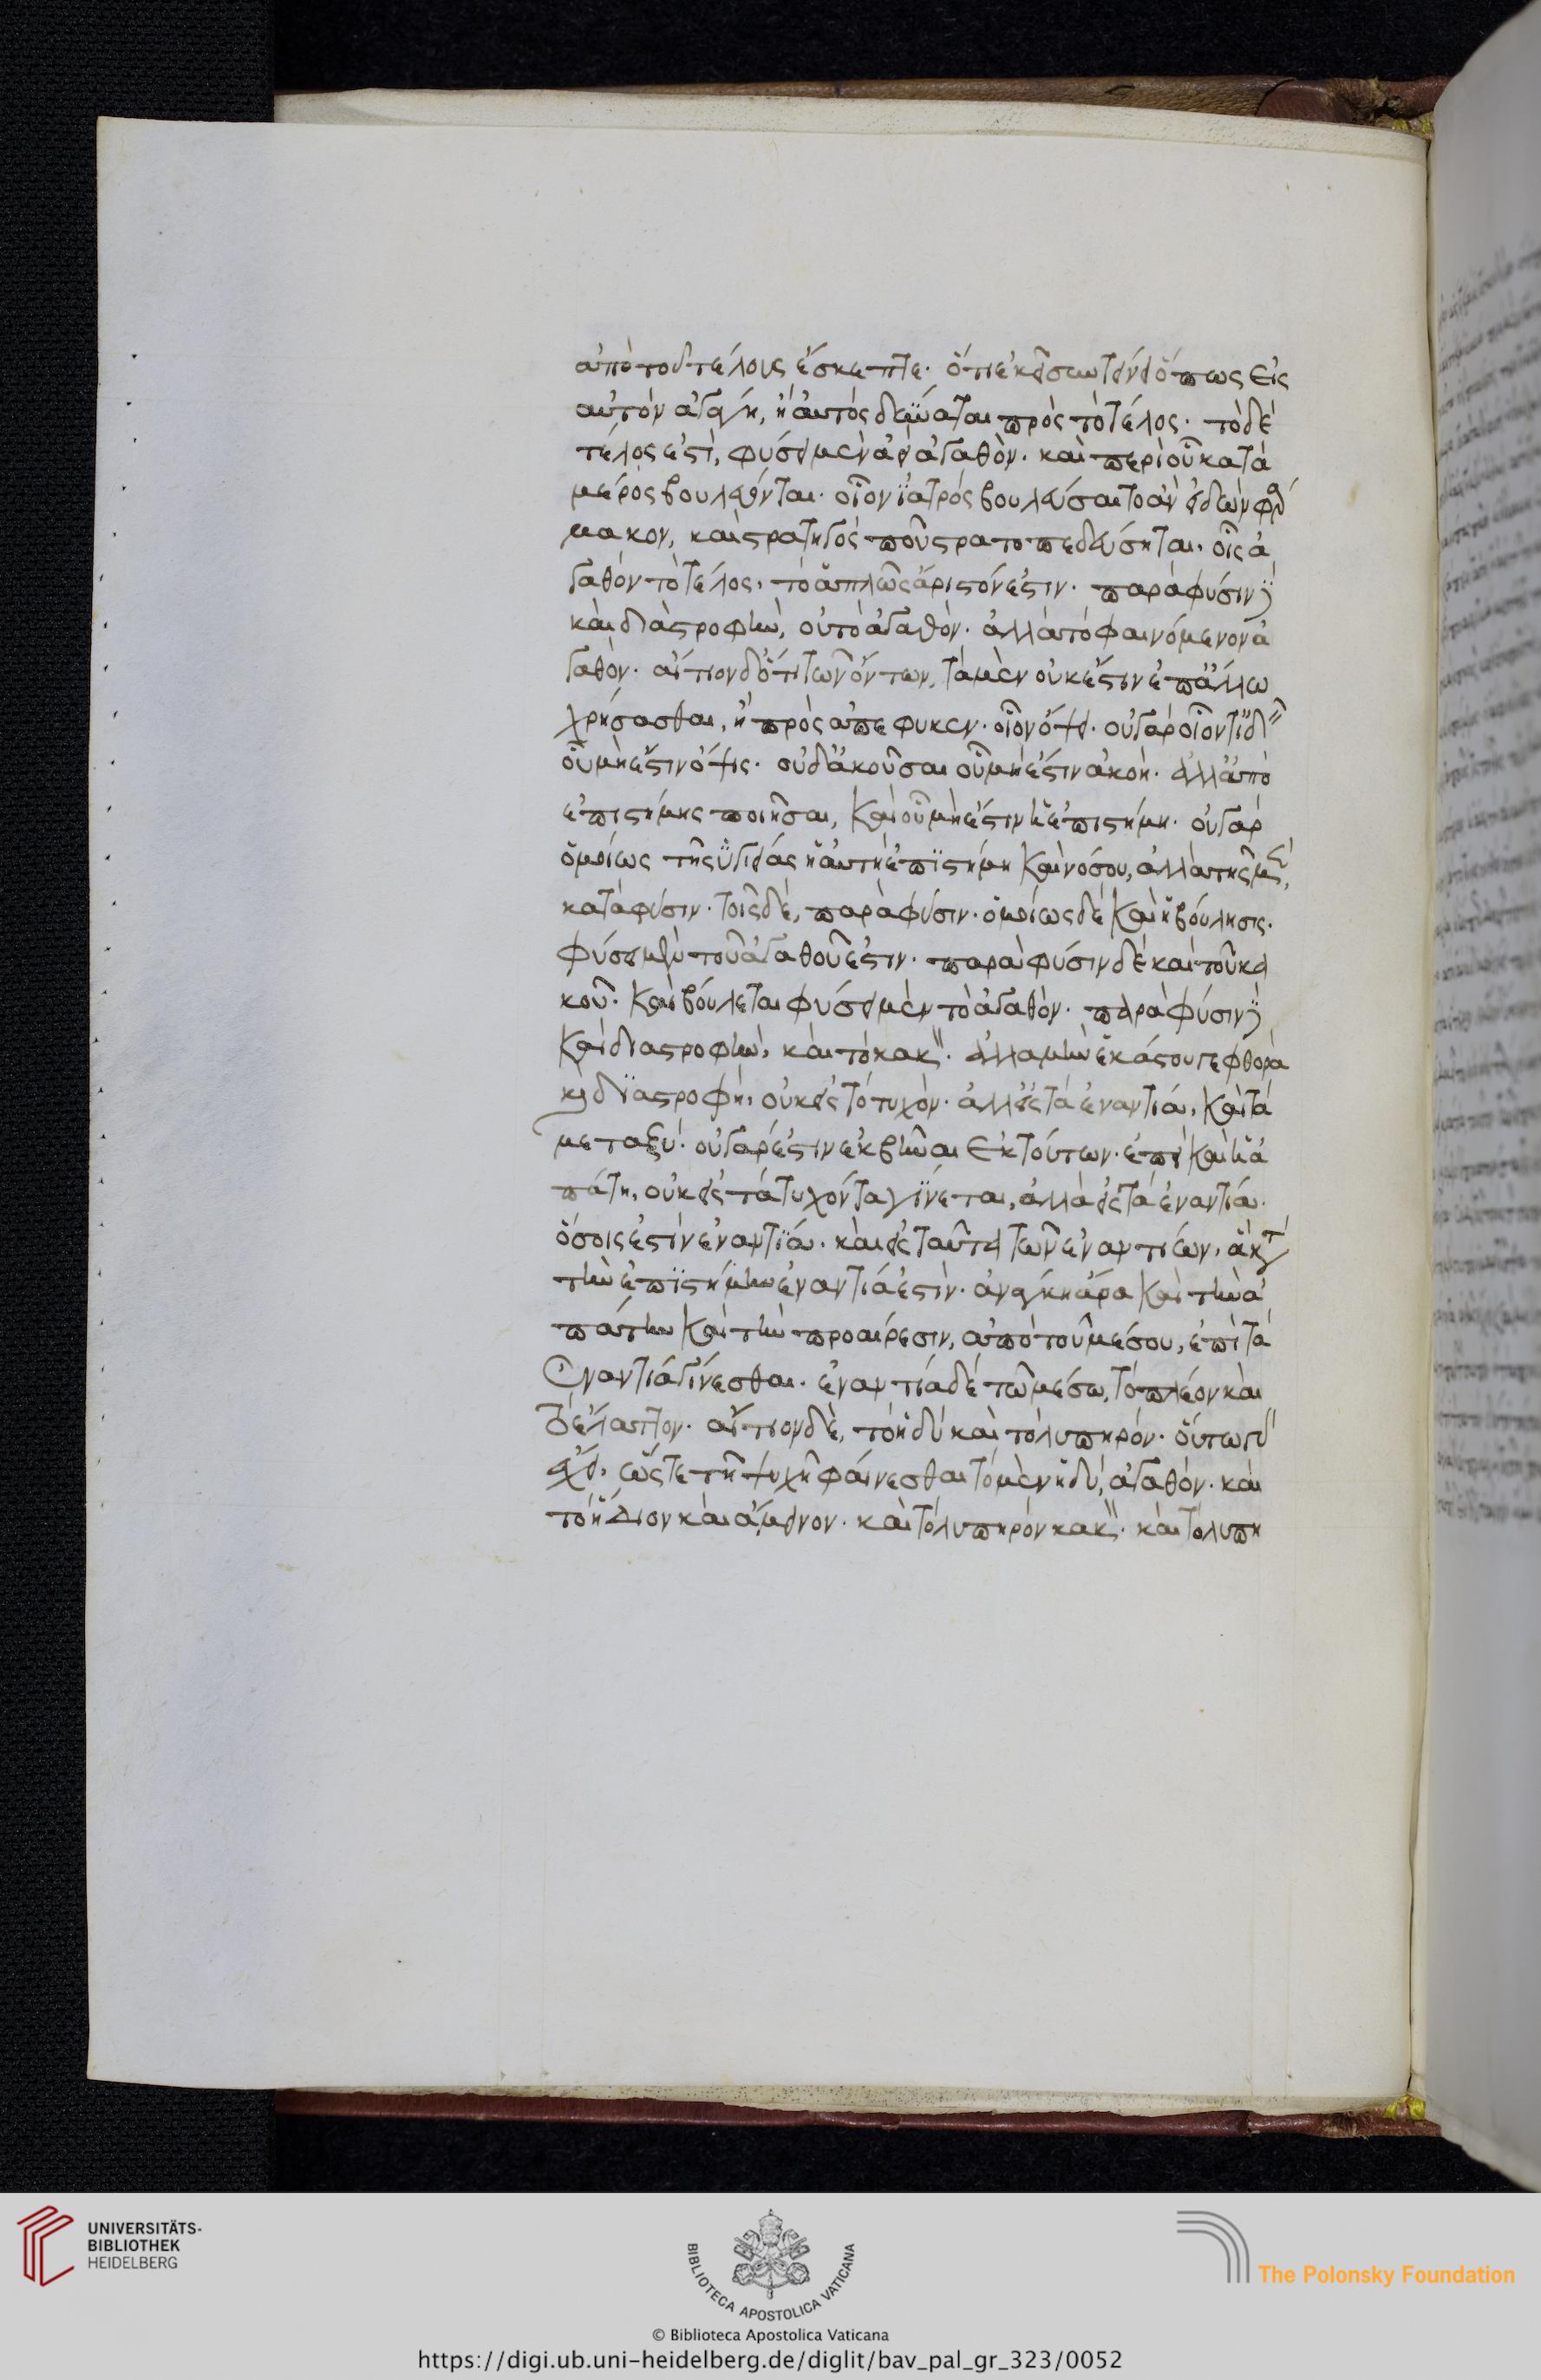 ἀπὸ τοῦ τέλους ἔσκεπται· ὅτι ἐκεῖ συντείνει ὅπως εἰς
αὐτὸν ἀγάγη, ἢ αὐτὸς δύναται πρὸς τὸ τέλος· τὸ δὲ
τέλος ἐστὶ, φύσει μὲν ἀεὶ ἀγαθὸν· καὶ περὶ οὗ κατὰ
μέρος βουλεύονται· οἷον ἰατρὸς βουλεύσαιτο ἂν εἰ δώη φάρ
μακον, καὶ στρατηγὸς ποῦ στρατοπεδεύσηται, οἷς ἀ
γαθὸν τὸ τέλος, τὸ ἁπλῶς ἄριστόν ἐστιν· παρὰ φύσιν δὲ
καὶ διαστροφὴν, οὐ τὸ ἀγαθὸν· ἀλλὰ τὸ φαινόμενον ἀ
γαθὸν· αἴτιον δ' ὅτι τῶν ὄντων, τὰ μὲν οὐκ ἔστιν ἐπ' ἄλλω
χρήσασθαι, ἢ πρὸς ἃ πέφυκεν· οἷον ὄψει· οὐ γὰρ οἷόν τ' ἰδεῖν
οὗ μὴ ἔστιν ὄψις· οὐδ' ἀκοῦσαι οὗ μὴ ἔστιν ἀκοή· ἀλλ' ἀπὸ
ἐπιστήμης ποιῆσαι, καὶ οὗ μὴ ἔστιν ἡ ἐπιστήμη· οὐ γὰρ
ὁμοίως τῆς ὑγιείας ἡ αὐτὴ ἐπιστήμη καὶ νόσου, ἀλλὰ τῆς μὲν,
κατὰ φύσιν· τοῖς δὲ, παρὰ φύσιν· ὁμοίως δὲ καὶ ἡ βούλησις·
φύσει μὲν τοῦ ἀγαθοῦ ἐστιν· παρὰ φύσιν δὲ καὶ τοῦ κα
κοῦ· καὶ βούλεται φύσει μὲν τὸ ἀγαθὸν· παρὰ φύσιν δὲ
καὶ διαστροφὴν, καὶ τὸ κακόν· ἀλλὰ μὴν ἑκάστου γε φθορὰ
καὶ διαστροφὴ, οὐκ εἰς τὸ τυχὸν· ἀλλ' εἰς τὰ ἐναντία, καὶ τὰ
μεταξύ· οὐ γὰρ ἔστιν ἐκβῆναι ἐκ τούτων· ἐπεὶ καὶ ἡ ἀ
πάτη, οὐκ εἰς τὰ τυχόντα γίνεται, ἀλλὰ εἰς τὰ ἐναντία·
ὅσοις ἐστὶν ἐναντία· καὶ εἰς ταῦτα τῶν ἐναντίων, ἃ κατὰ
τὴν ἐπιστήμην ἐναντία ἐστὶν· ἀνάγκη ἄρα καὶ τὴν ἀ
πάτην καὶ τὴν προαίρεσιν, ἀπὸ τοῦ μέσου, ἐπὶ τὰ
ἐναντία γίνεσθαι· ἐναντία δὲ τῶ μέσω, τὸ πλέον καὶ
τὸ ἔλαττον· αἴτιον δὲ, τὸ ἡδὺ καὶ τὸ λυπηρόν· οὕτω γὰρ
ἔχει, ὥστε τῆ ψυχῆ φαίνεσθαι τὸ μὲν ἡδὺ, ἀγαθὸν· καὶ
τὸ ἥδιον καὶ ἄμεινον· καὶ τὸ λυπηρὸν κακόν· καὶ τὸ λυπη
UNIVERSITÄTS-
BIBLIOTHEK
HEIDELBERG
BIBLIOTECA APOSTOLICA VATICANA
The Polonsky Foundation
© Biblioteca Apostolica Vaticana
https://digi.ub.uni-heidelberg.de/diglit/bav_pal_gr_323/0052